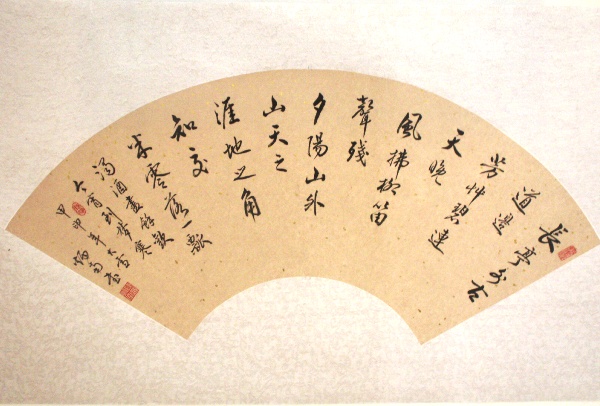 長亭外古
道邊
芳艸碧連
天晚
風拂柳笛
聲殘
夕陽山外
山天之
涯地之角
知交
半零落一瓢
濁酒盡餘歡
今宵別夢寒
甲申年大雪